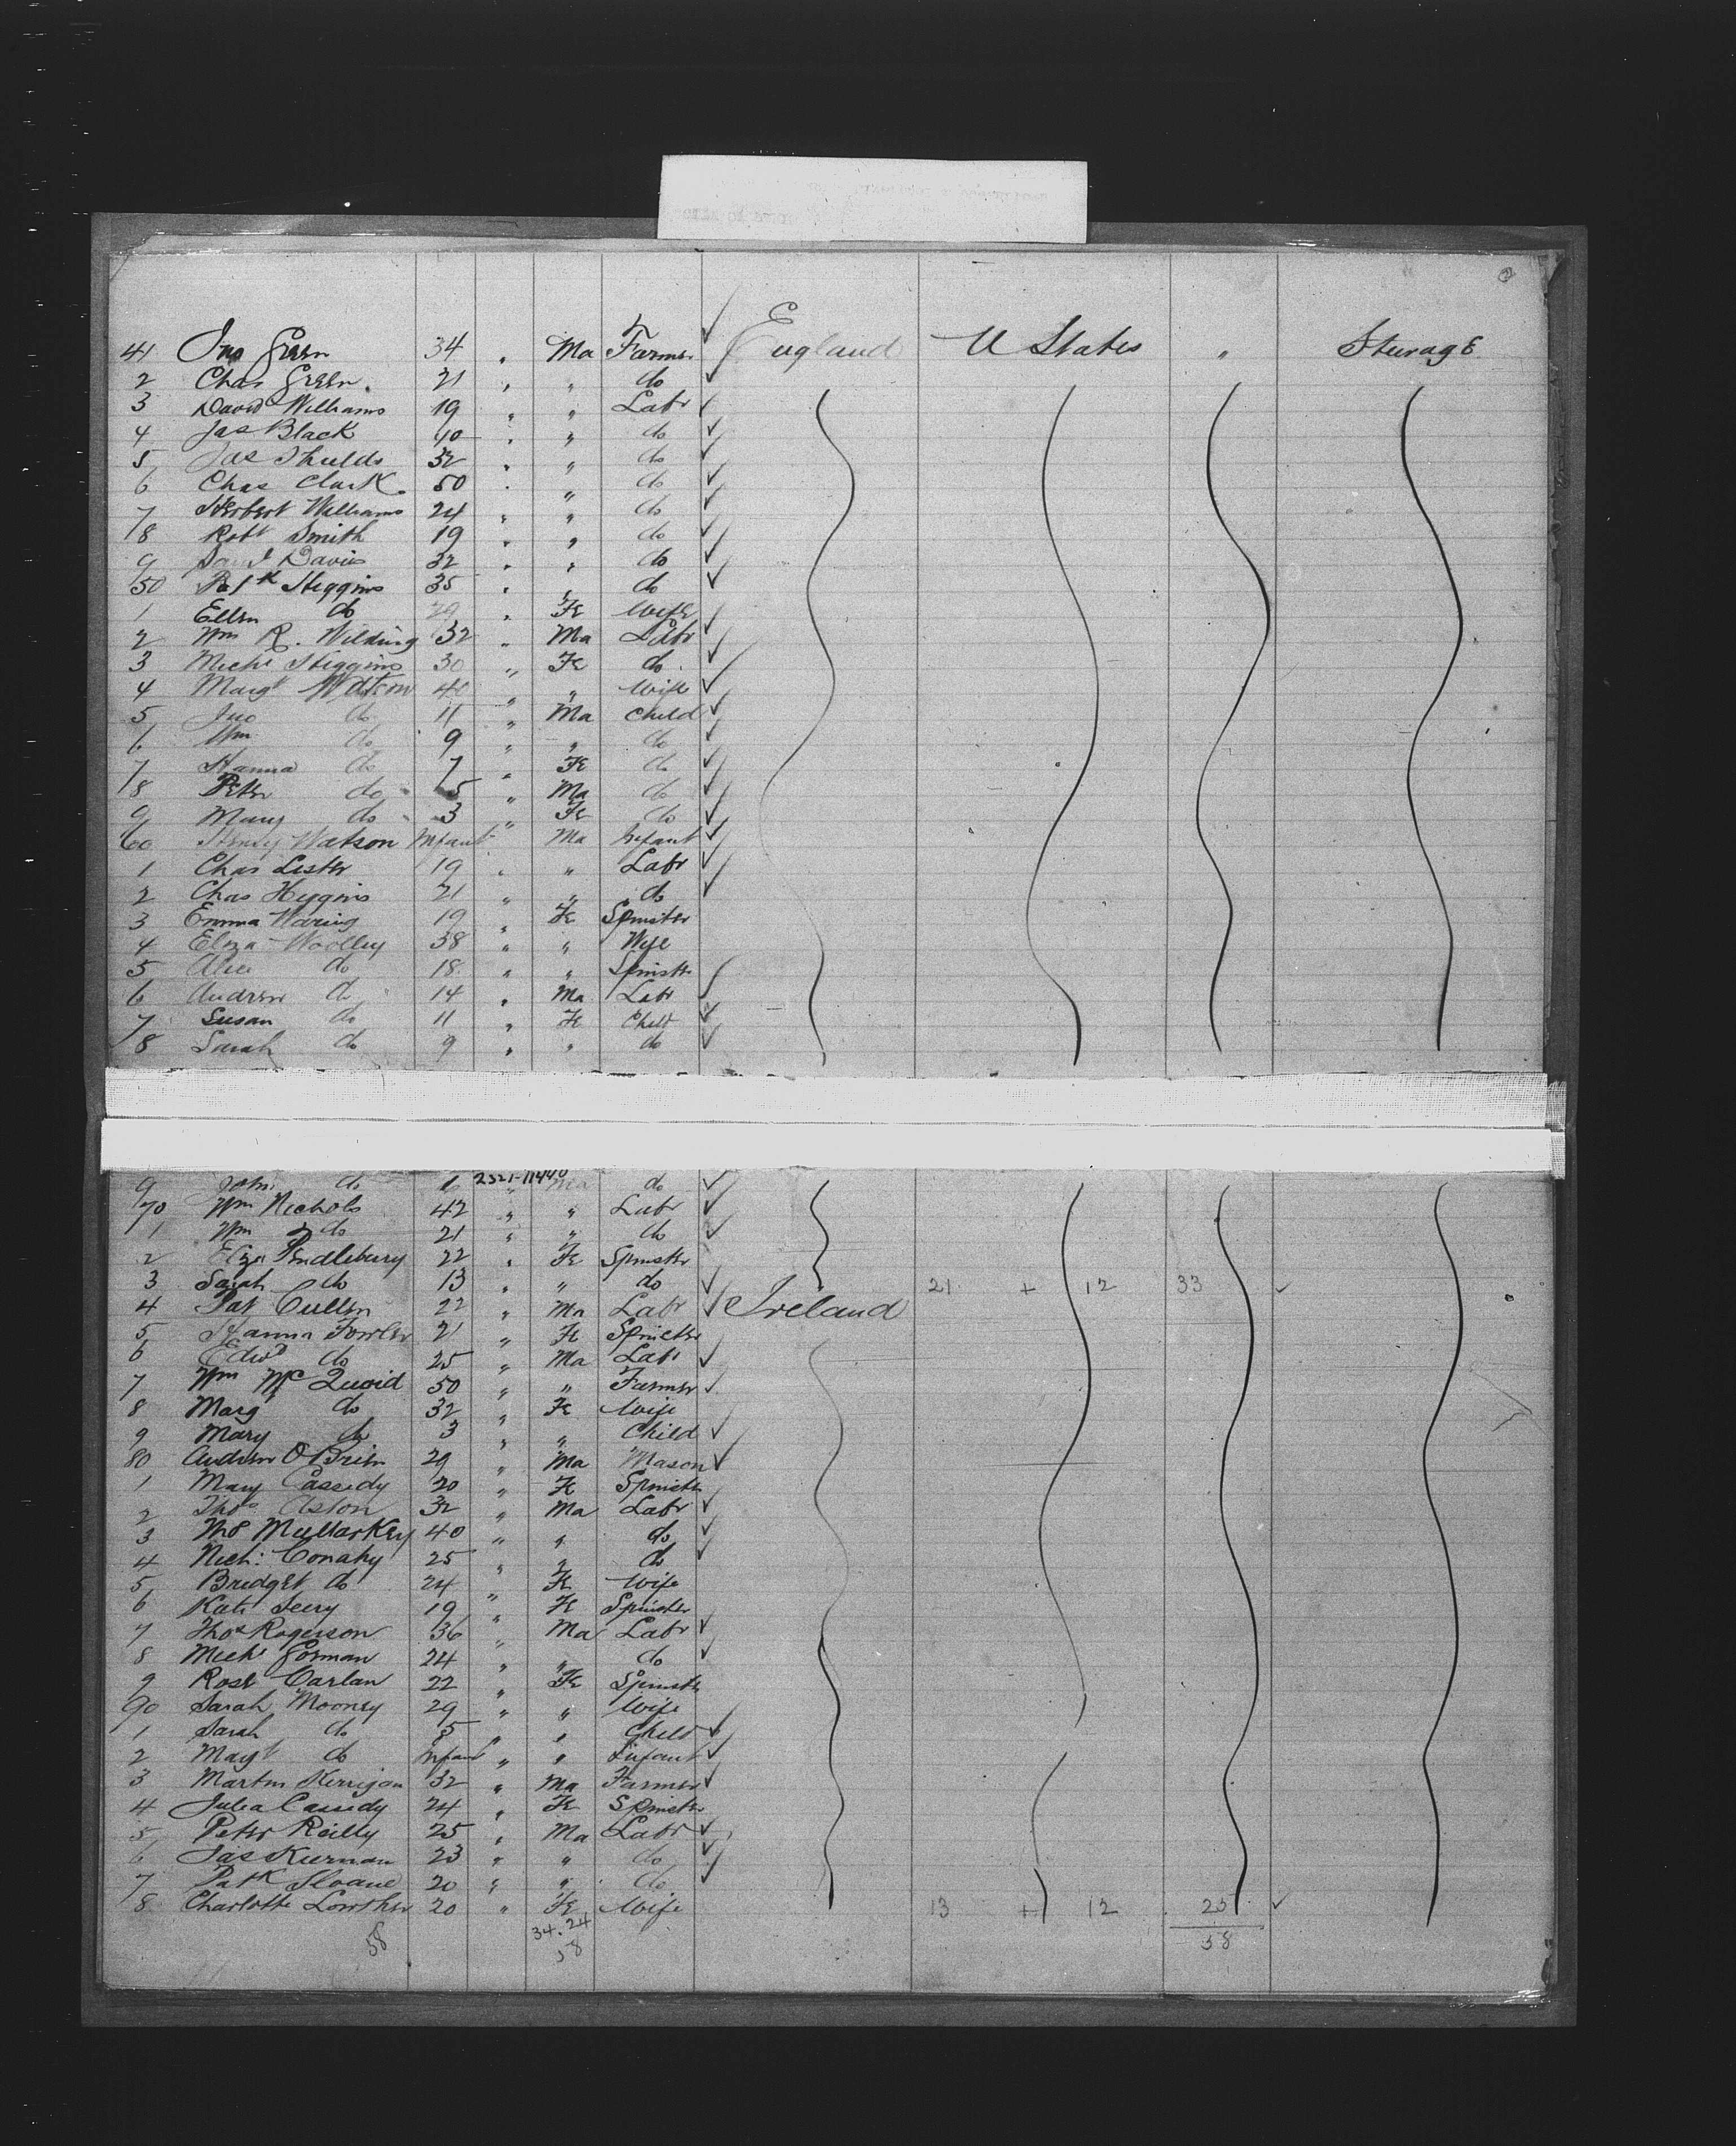 41 Jno Green 34 " Ma Farmer England U States " Sturage
2 Chas Green. 21 " " do
3 David Williams 19 " " Labr
4 Jas Black 40 " " do
5 Jas Shulds 32 " " do
6 Chas Clark. 50 " " do
7 Herbert Williams 24 " " do
8 Robt Smith 19 " " do
9 Davis 32 " " do
50 Patk Higgins 35 " " do
1 Ellen do 29 " Fe Wife
2 Wm R. Wilding 32 " Ma Labr
3 Michl Higgins 30 " Fe do
4 Margt Watson 40 " " Wife
5 Jno do 11 " Ma Child
6 Wm do 9 " " do
7 Hanna do 7 " Fe do
8 Peter do 5 " Ma do
9 Mary do 3 " Fe do
60 Henry Watson Infant " Ma Infant
1 Chas Lester 19 " " Labr
2 Chas Higgins 21 " " do
3 Emma Waring 19 " Fe Spinster
4 Eliza Woolley 38 " " Wife
5 Alice do 18 " " Spinstr
6 Andrew do 14 " Ma Labr
7 Susan do 11 " Fe Child
8 Sarah do 9 " " do
2321-11440
9 John do 6 " Ma do
70 Wm Nichols 42 " " Labr
1 Wm do 21 " " do
2 Eliza Pendlebury 22 " Fe Spinster
3 Sarah do 13 " " do 21 + 12 33
4 Pat Cullen 22 " Ma Labr Ireland
5 Hanna Fowler 21 " Fe Spinster
6 Edwd do 25 " Ma Labr
7 Wm McQuoid 50 " " Farmer
8 Margt do 32 " Fe Wife
9 Mary do 3 " " Child
80 Andrew O'Brien 29 " Ma Mason
1 Mary Cassidy 20 " Fe Spinster
2 Thos Aston 32 " Ma Labr
3 Thos Mullarkey 40 " " do
4 Mich: Conahy 25 " " do
5 Bridget do 24 " Fe Wife
6 Kate 19 " Fe Spinster
7 Thos Rogerson 36 " Ma Labr
8 Michl Gorman 24 " " do
9 Rose Carlan 22 " Fe Spinstr
90 Sarah Mooney 29 " " Wife
1 Sarah do 5 " " Child
2 Margt do Infant " " Infant
3 Martin Kerrigan 32 " Ma Farmer
4 Julia Cassidy 24 " Fe Spinster
5 Peter Reilly 25 " Ma Labr
6 Jas Kiernan 23 " " do
7 Patk Sloane 20 " " do
8 Charlotte Lowther 20 " Fe Wife 13 + 12 25
58 34.24 58
58